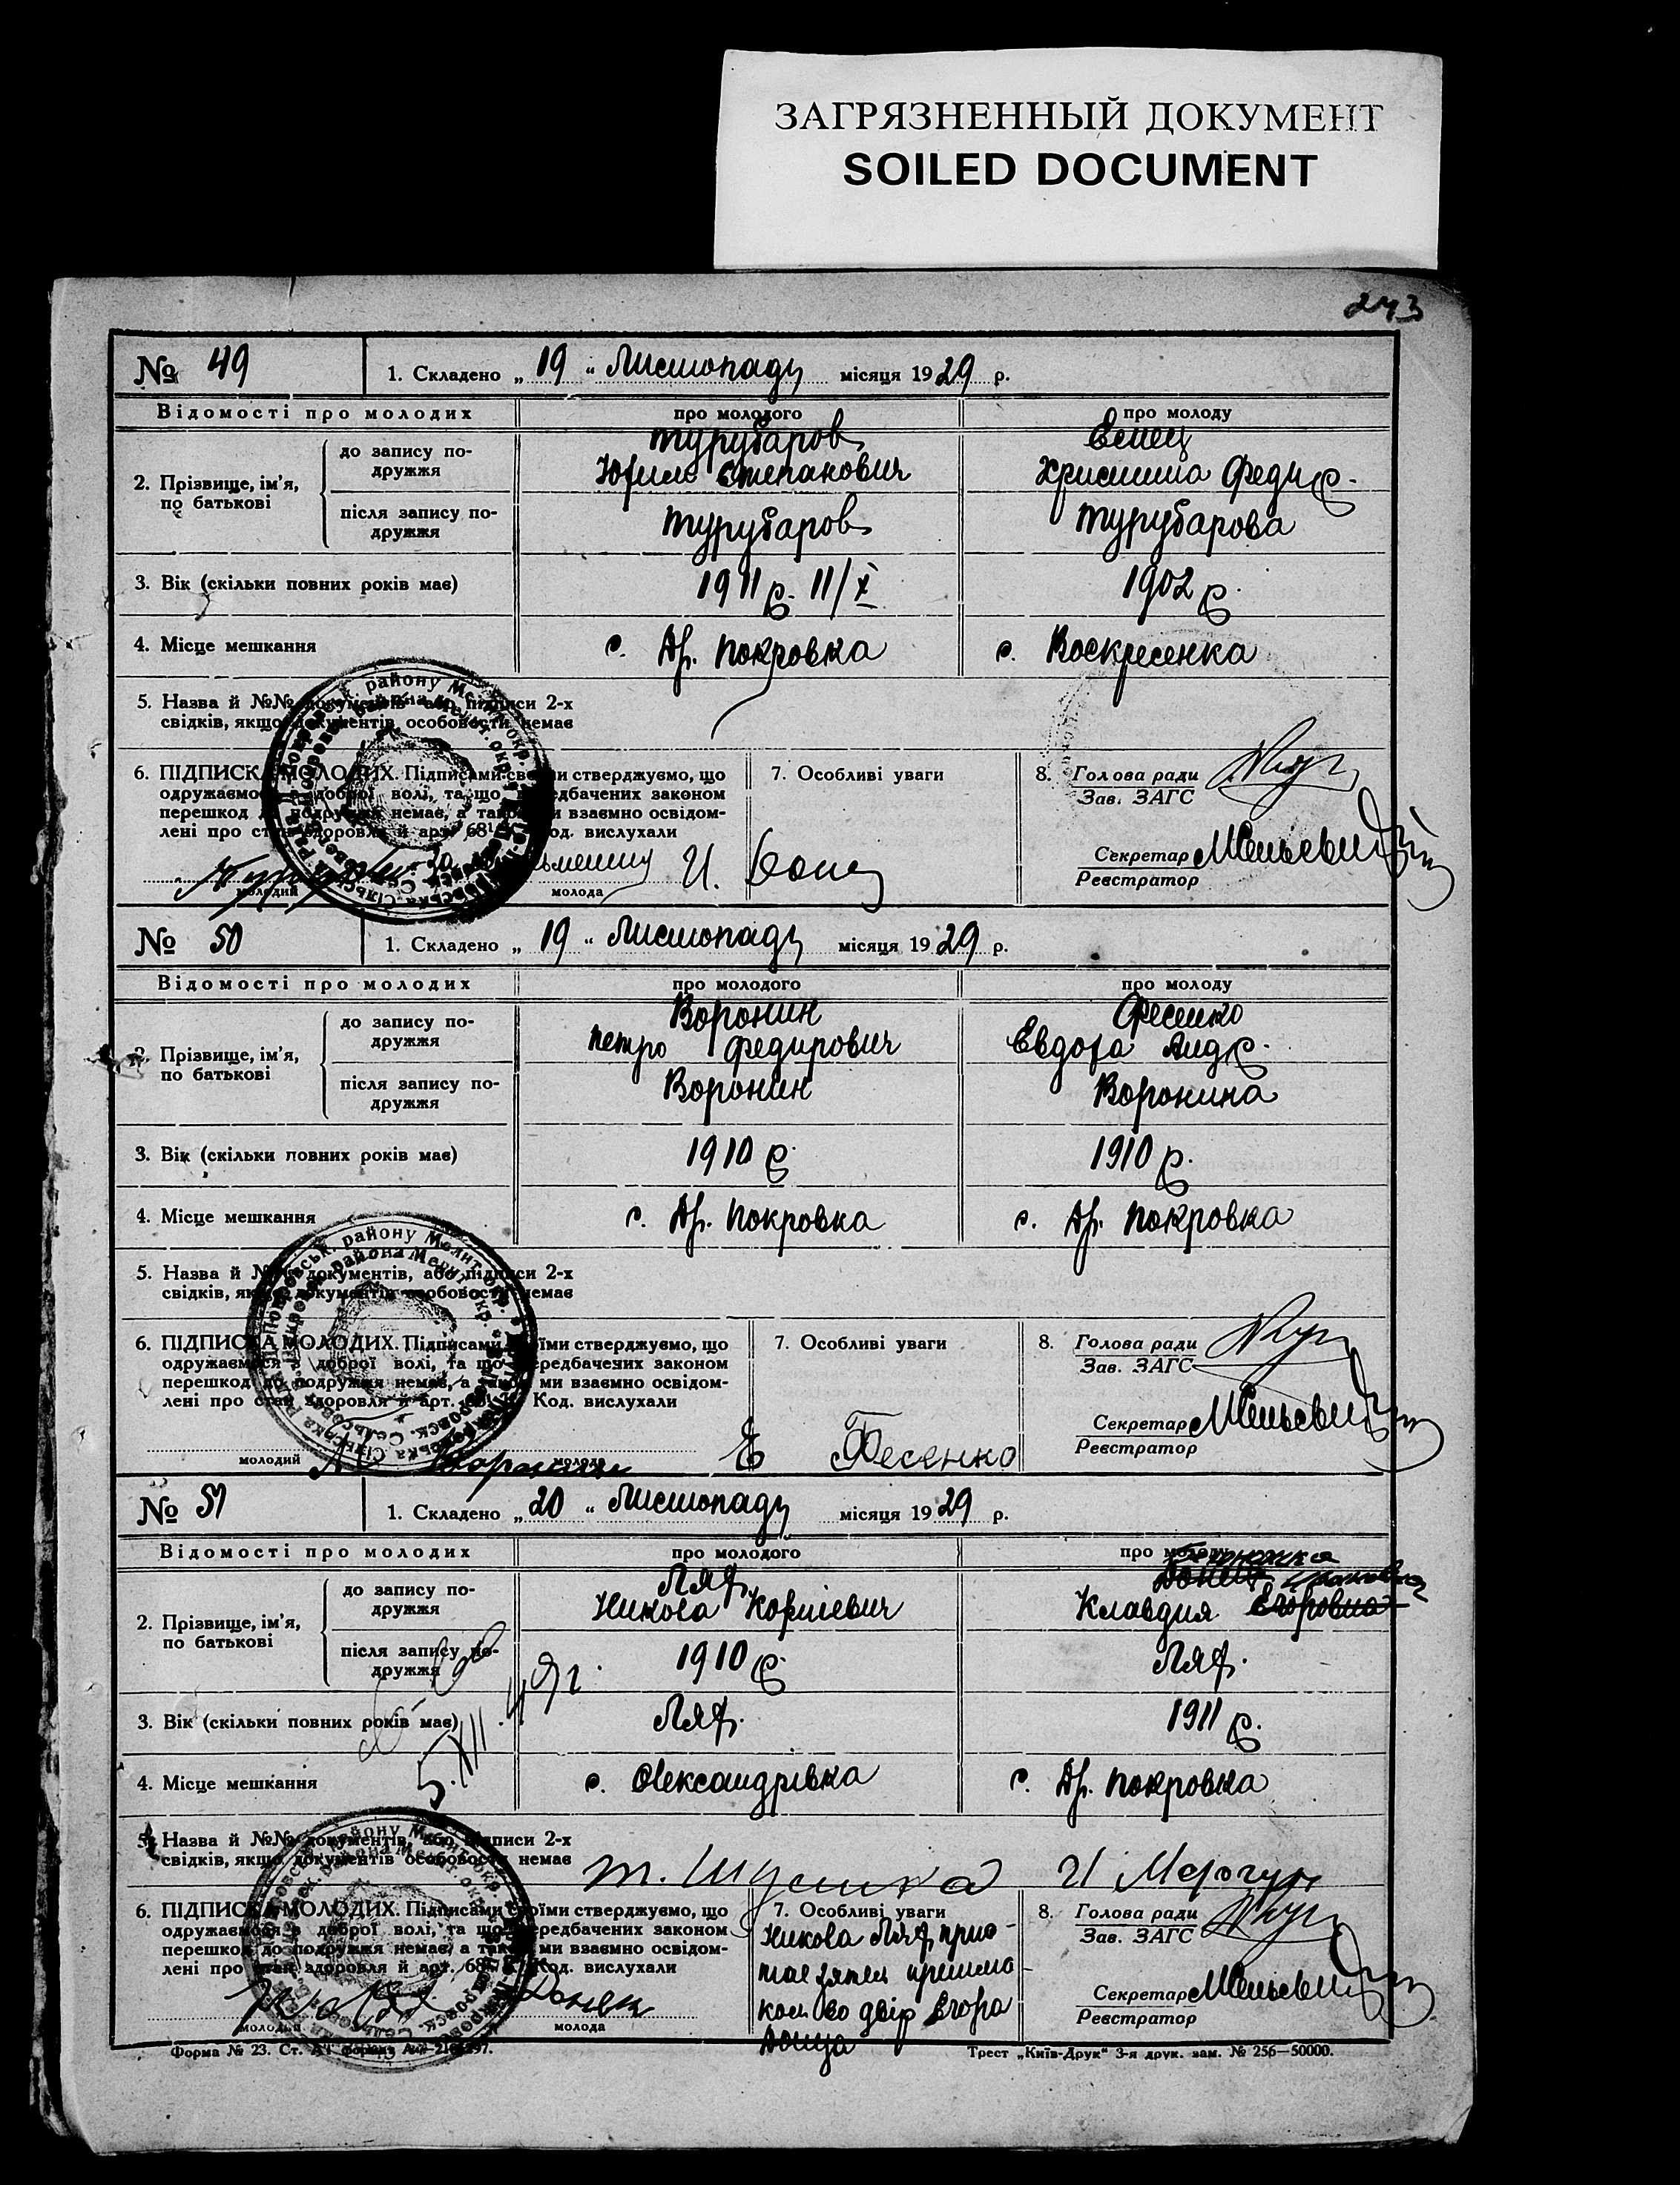 ЗАГРЯЗНЕННЫЙ ДОКУМЕНТ
SOILED DOCUMENT
243
№ 49
1. Складено „ 19 “ Листопаду місяця 1929 р.
Відомості про молодих
про молодого
про молоду
2. Прізвище, ім’я, по батькові
до запису по-
дружжя
Турубаров
Юхим Степанович
Христина Федір.
після запису по-
дружжя
Турубаров
Турубарова
3. Вік (скільки повних років має)
1911 р. 11/X
1902 р.
4. Місце мешкання
с. Др. Покровка
с. Воскресенка
5. Назва й №№ документів, або підписи 2-х
свідків, якщо документів особовости немає
6. ПІДПИСКА МОЛОДИХ. Підписами своїми стверджуємо, що
одружаємося з доброї волі, та що передбачених законом
перешкод до подружжя немає, а також ми взаємно освідом-
лені про стан здоров'я й арт. Код. вислухали
молодий
молода
7. Особливі уваги
8. Голова ради
Зав. ЗАГС
Секретар
Реєстратор
№ 50
1. Складено „ 19 “ Листопаду місяця 1929 р.
Відомості про молодих
про молодого
про молоду
2. Прізвище, ім’я,
по батькові
до запису по-
дружжя
Воронин
Петро Федирович
Фесенко
Евдоха Андр.
після запису по-
дружжя
Воронин
Воронина
3. Вік (скільки повних років має)
1910 р.
1910 р.
4. Місце мешкання
с. Др. Покровка
с. Др. Покровка
5. Назва й №№ документів, або підписи 2-х
свідків, якщо документів особовости немає
6. ПІДПИСКА МОЛОДИХ. Підписами своїми стверджуємо, що
одружаємося з доброї волі, та що передбачених законом
перешкод до подружжя немає, а також ми взаємно освідом-
лені про стан здоровля й арт. Код. вислухали
молодий
молода
Е Фесенко
7. Особливі уваги
8. Голова ради
Зав. ЗАГС
Секретар
Реєстратор
№ 51
1. Складено „ 20 “ Листопаду місяця 1929 р.
Відомості про молодих
про молодого
про молоду
2. Прізвище, ім’я,
по батькові
до запису по-
дружжя
Лях
Никова Корнієвич
Донец
Клавдия Егоровна
після запису по-
дружжя
1910 р.
Лях.
3. Вік (скільки повних років має)
Лях.
1911 р.
4. Місце мешкання
с. Олександрівка
с. Др. Покровка
5. Назва й №№ документів, або підписи 2-х
свідків, якщо документів особовости немає
6. ПІДПИСКА МОЛОДИХ. Підписами своїми стверджуємо, що
одружаємося з доброї волі, та що передбачених законом
перешкод до подружжя немає, а також ми взаємно освідом-
лені про стан здоровля й арт. Код. вислухали
молодий
молода
Донец
7. Особливі уваги
Никова Лях
во двір Егора
Донца
8. Голова ради
Зав. ЗАГС
Секретар
Реєстратор
Форма № 23. Ст.
Трест „Київ-Друк“ 3-я друк. зам. № 256—50000.